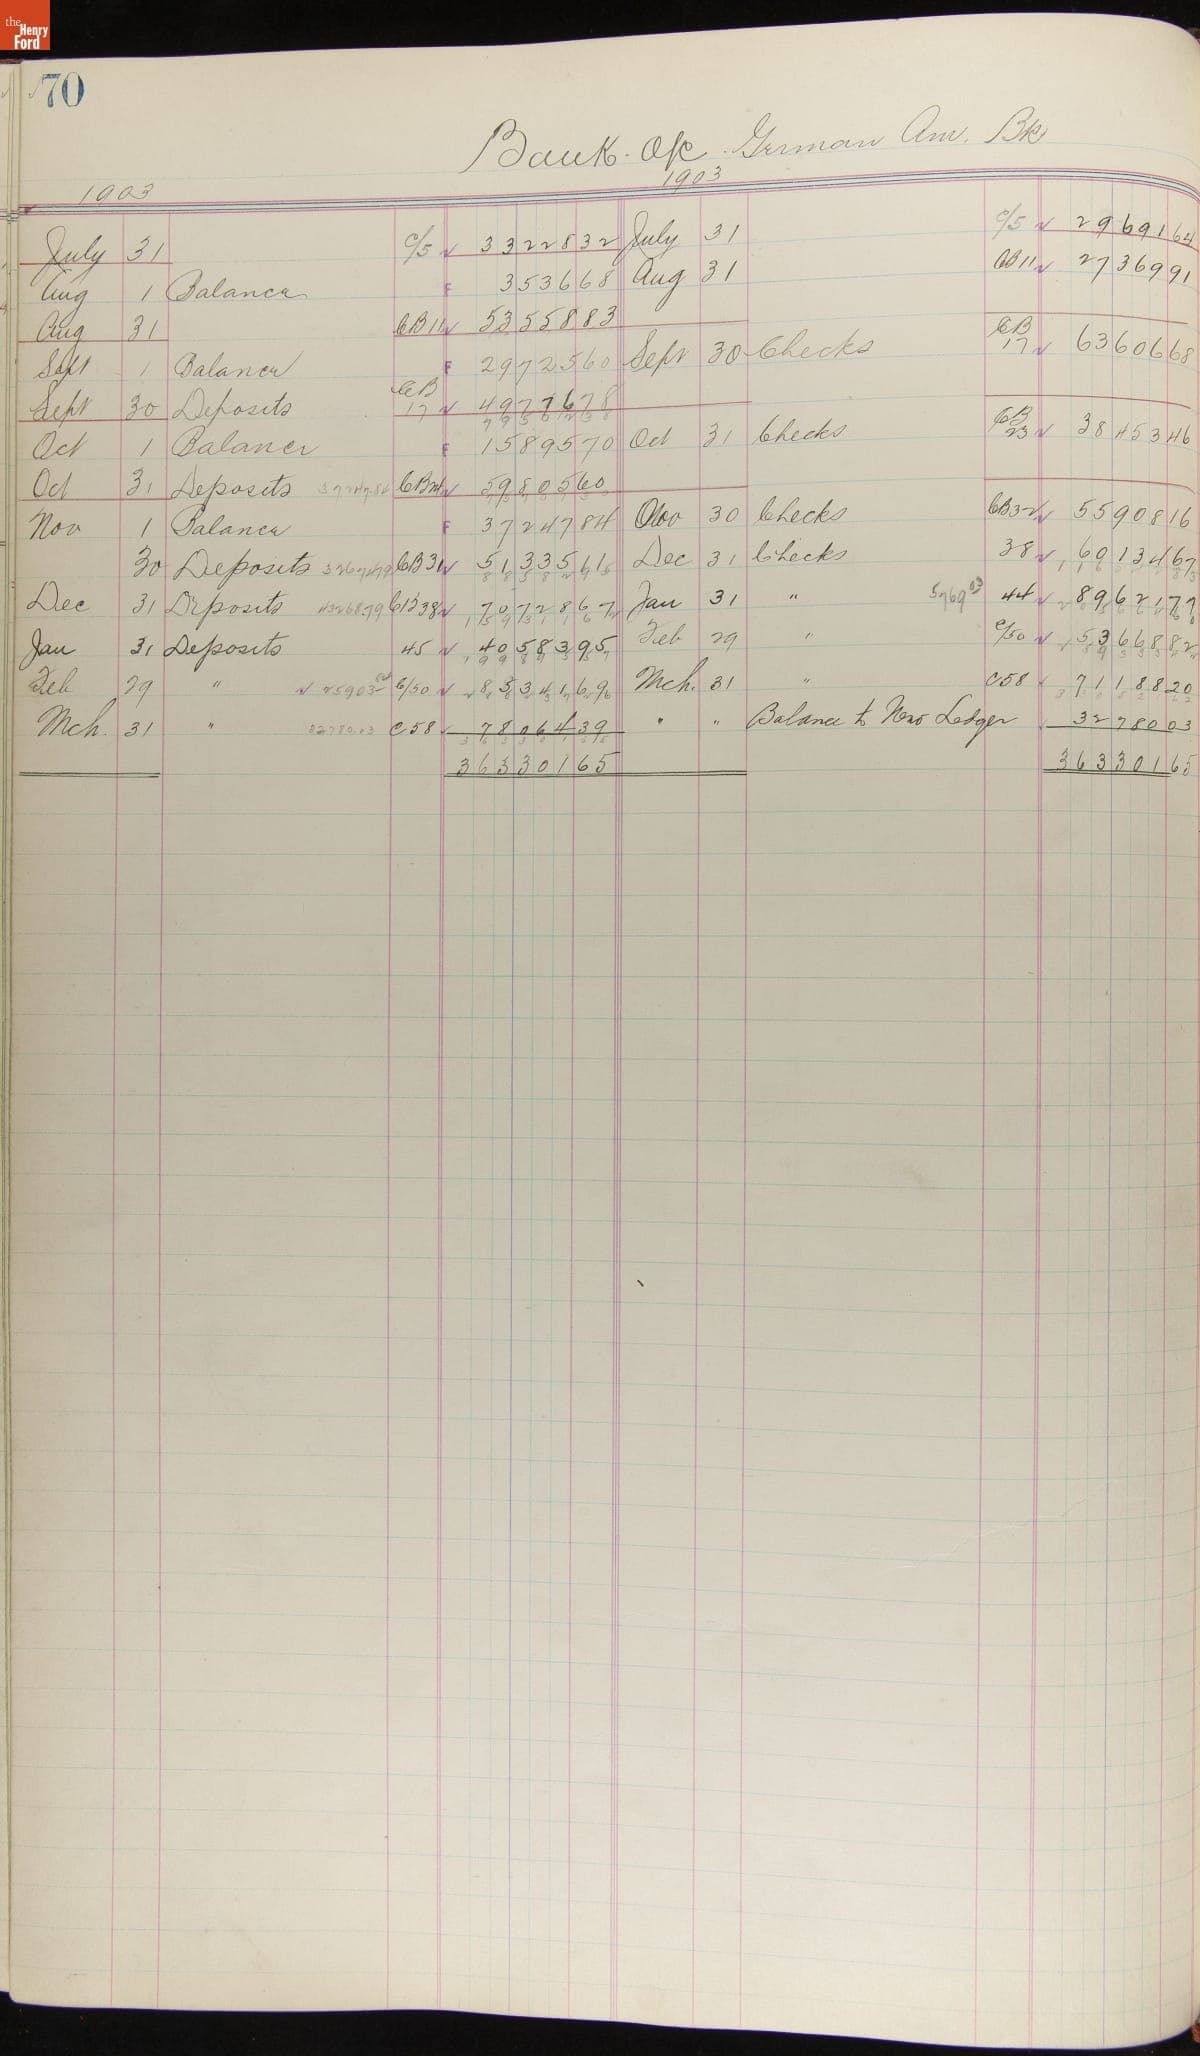 the Henry Ford
70
Bank a/c German Am. Bk
1903 1903
July 31 C/5 33228 32 July 31 C/5 29691 64
Aug 1 Balance F 3536 68 Aug 31 CB 11 27369 91
Aug 31 CB 11 53558 83
Sept 1 Balance F 29725 60 Sept 30 Checks CB 17 63606 68
Sept 30 Deposits CB 17 49776 78
Oct 1 Balance F 15895 70 Oct 31 Checks CB 23 38453 46
Oct 31 Deposits 37247.84 CB 24 59805 60
Nov 1 Balance F 37247 84 Nov 30 Checks CB 32 55908 16
30 Deposits 32674.79 CB 31 51335 11 Dec 31 Checks 38 60134 67
Dec 31 Deposits 43268.79 CB 38 70728 67 Jan 31 " 5769 03 44 89621 77
Jan 31 Deposits 45 40583 95 Feb 29 " C/50 53668 82
Feb 29 " 25903 C/50 83341 69 Mch. 31 " C 58 71188 20
Mch. 31 " 32780.03 C 58 78064 39 " " Balance to New Ledger 32780 03
363301 65 363301 65